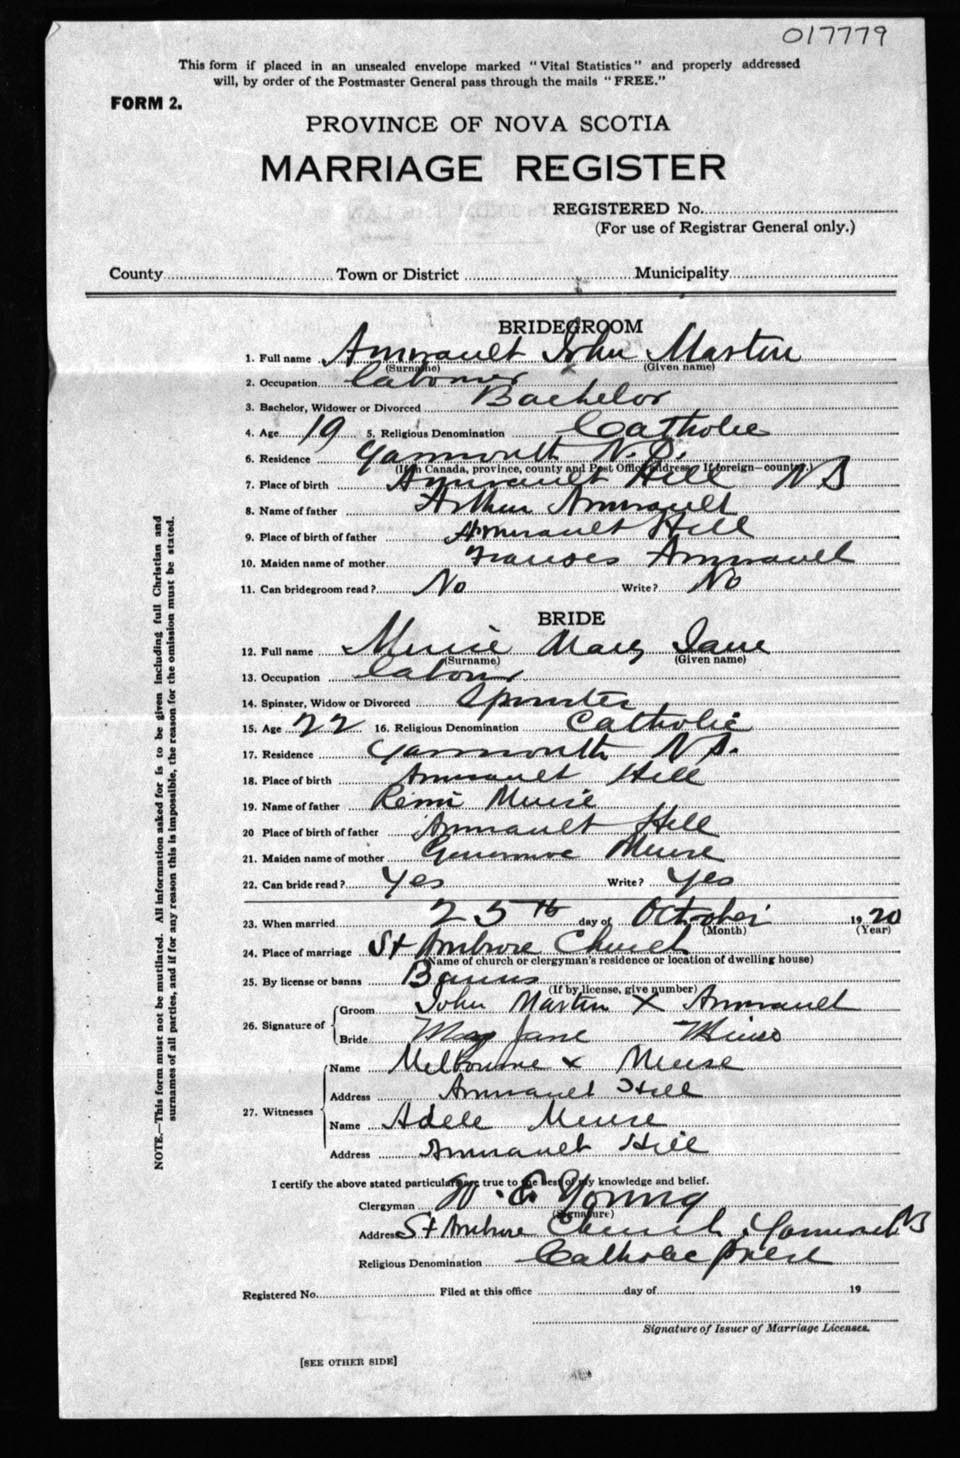 017779
This form if placed in an unsealed envelope marked "Vital Statistics" and properly addressed
will, by order of the Postmaster General pass through the mails "FREE."
FORM 2.
PROVINCE OF NOVA SCOTIA
MARRIAGE REGISTER
REGISTERED No.
(For use of Registrar General only.)
County Town or District Municipality
BRIDEGROOM
1. Full name Amirault John Martin
(Surname) (Given name)
2. Occupation Labourer
3. Bachelor, Widower or Divorced Bachelor
4. Age 19 5. Religious Denomination Catholic
6. Residence Yarmouth N.S.
(If in Canada, province, county and Post Office address. If foreign—country.)
7. Place of birth Amirault Hill NS
8. Name of father Arthur Amirault
9. Place of birth of father Amirault Hill
10. Maiden name of mother Frances Amirault
11. Can bridegroom read? No Write? No
BRIDE
12. Full name Muise Mary Jane
(Surname) (Given name)
13. Occupation Labour
14. Spinster, Widow or Divorced Spinster
15. Age 22 16. Religious Denomination Catholic
17. Residence Yarmouth NS.
18. Place of birth Amirault Hill
19. Name of father Remi Muise
20 Place of birth of father Amirault Hill
21. Maiden name of mother Muise
22. Can bride read? Yes Write? Yes
23. When married 25th day of October 1920
(Month) (Year)
24. Place of marriage St Ambrose Church
(Name of church or clergyman's residence or location of dwelling house)
25. By license or banns Banns
(If by license, give number)
26. Signature of Groom John Martin X Amirault
Bride May Jane Muise
27. Witnesses Name Melbourne x Meuse
Address Amirault Hill
Name Adele Meuse
Address Amirault Hill
I certify the above stated particulars are true to the best of my knowledge and belief.
Clergyman W. E. Young
(Signature)
Address St Ambrose Church, Yarmouth NS
Religious Denomination Catholic priest
Registered No. Filed at this office day of 19
Signature of Issuer of Marriage Licenses.
[SEE OTHER SIDE]
NOTE.—This form must not be mutilated. All information asked for is to be given including full Christian and
surnames of all parties, and if for any reason this is impossible, the reason for the omission must be stated.